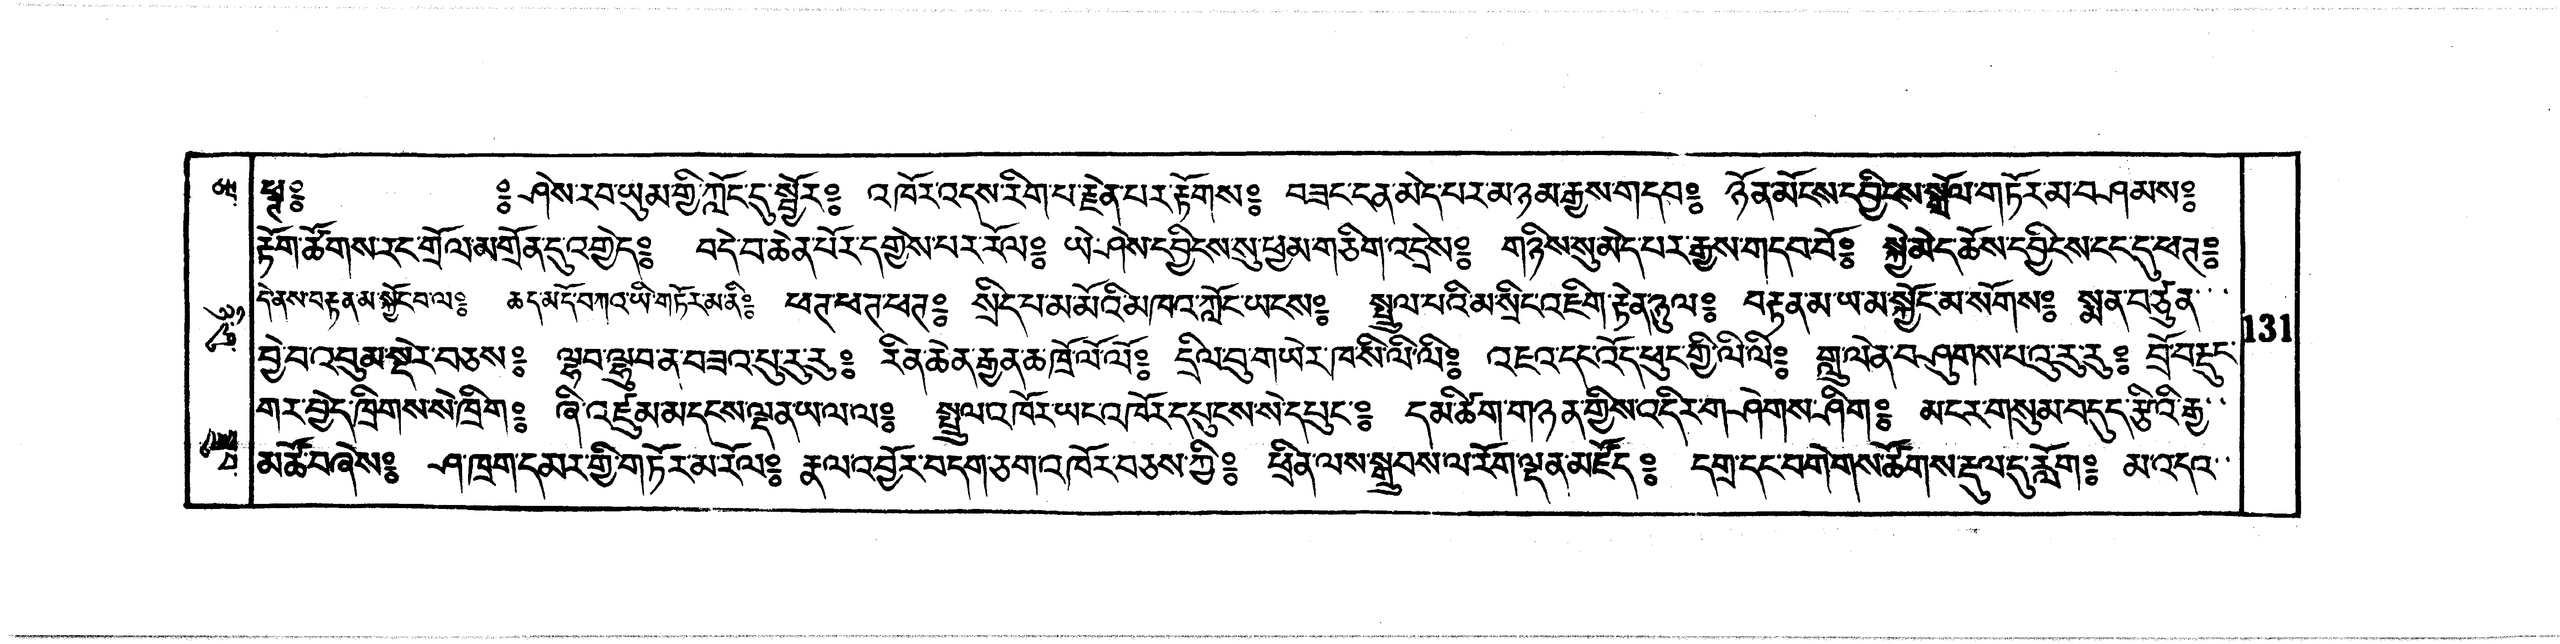 ཕྲྀ༔ ༔ཤེས་རབ་ཡུམ་གྱི་ཀློང་དུ་སྦྱོར༔ འཁོར་འདས་རིག་པ་རྗེན་པར་རྟོགས༔ བཟང་ངན་མེད་པར་མཉམ་རྒྱས་གདབ༔ ཉོན་མོངས་དབྱིངས་སྒྲོལ་གཏོར་མ་བཤམས༔
རྟོག་ཚོགས་རང་གྲོལ་མགྲོན་དུ་འགྱེད༔ བདེ་བ་ཆེན་པོར་དགྱེས་པར་རོལ༔ ཡེ་ཤེས་དབྱིངས་སུ་ཕྱམ་གཅིག་འདྲེས༔ གཉིས་སུ་མེད་པར་རྒྱས་གདབ་བོ༔ སྐྱེ་མེད་ཆོས་དབྱིངས་ངང་དུ་ཕཊ༔
དེནས་བརྟན་མ་སྐྱོང་བ་ལ༔ ཆད་མདོ་བཀའ་ཡི་གཏོར་མ་ནི༔ ཕཊ་ཕཊ་ཕཊ༔ སྲིད་པ་མ་མོའི་མཁའ་ཀློང་ཡངས༔ སྤྲུལ་པའི་མ་སྲིང་འཇིག་རྟེན་ཉུལ༔ བརྟན་མ་ཡ་མ་སྐྱོང་མ་སོགས༔ སྨན་བཙུན་
བྱེ་བ་འབུམ་སྡེར་བཅས༔ ལྷབ་ལྷུབ་ན་བཟའ་པུ་རུ་རུ༔ རིན་ཆེན་རྒྱན་ཆ་ཁྲོ་ལོ་ལོ༔ དྲིལ་བུ་གཡེར་ཁ་སི་ལི་ལི༔ འཇའ་དང་འོད་ཕུང་གྱི་ལི་ལི༔ གླུ་ལེན་བཤུགས་པ་འུ་རུ་རུ༔ བྲོ་བརྡུང་
གར་བྱེད་ཁྲིགས་སེ་ཁྲིག༔ ཞི་འཛུམ་མདངས་ལྡན་ཡ་ལ་ལ༔ སྤྲུལ་འཁོར་ཡང་འཁོར་དཔུངས་སེ་དཔུང༔ དམ་ཚིག་གཉན་གྱིས་འདིར་གཤེགས་ཤིག༔ མངར་གསུམ་བདུད་རྩིའི་རྒྱ་
མཚོ་བཞེས༔ ཤ་ཁྲག་དམར་གྱི་གཏོར་མ་རོལ༔ རྣལ་འབྱོར་བདག་ཅག་འཁོར་བཅས་ཀྱི༔ ཕྲིན་ལས་སྒྲུབས་ལ་རོག་ལྡན་མཛོད༔ དགྲ་དང་བགེགས་ཚོགས་རྡུལ་དུ་རློག༔ མ་འདའ་
131